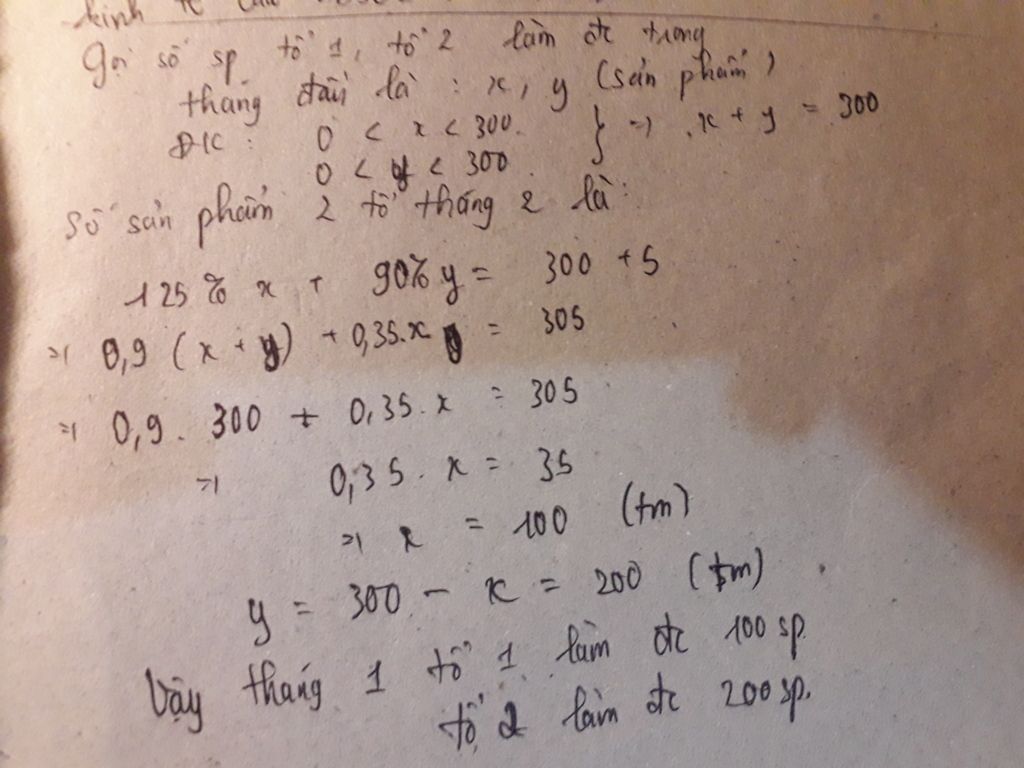 kinh tế
Gọi số sp tổ 1, tổ 2 làm đc trong
tháng đầu là : x, y (sản phẩm)
ĐK : 0 < x < 300 } => x + y = 300
0 < y < 300
Số sản phẩm 2 tổ tháng 2 là :
125% x + 90% y = 300 + 5
=> 0,9 (x + y) + 0,35.x = 305
=> 0,9 . 300 + 0,35.x = 305
=> 0,35.x = 35
=> x = 100 (tm)
y = 300 - x = 200 (tm)
Vậy tháng 1 tổ 1 làm đc 100 sp
tổ 2 làm đc 200 sp.